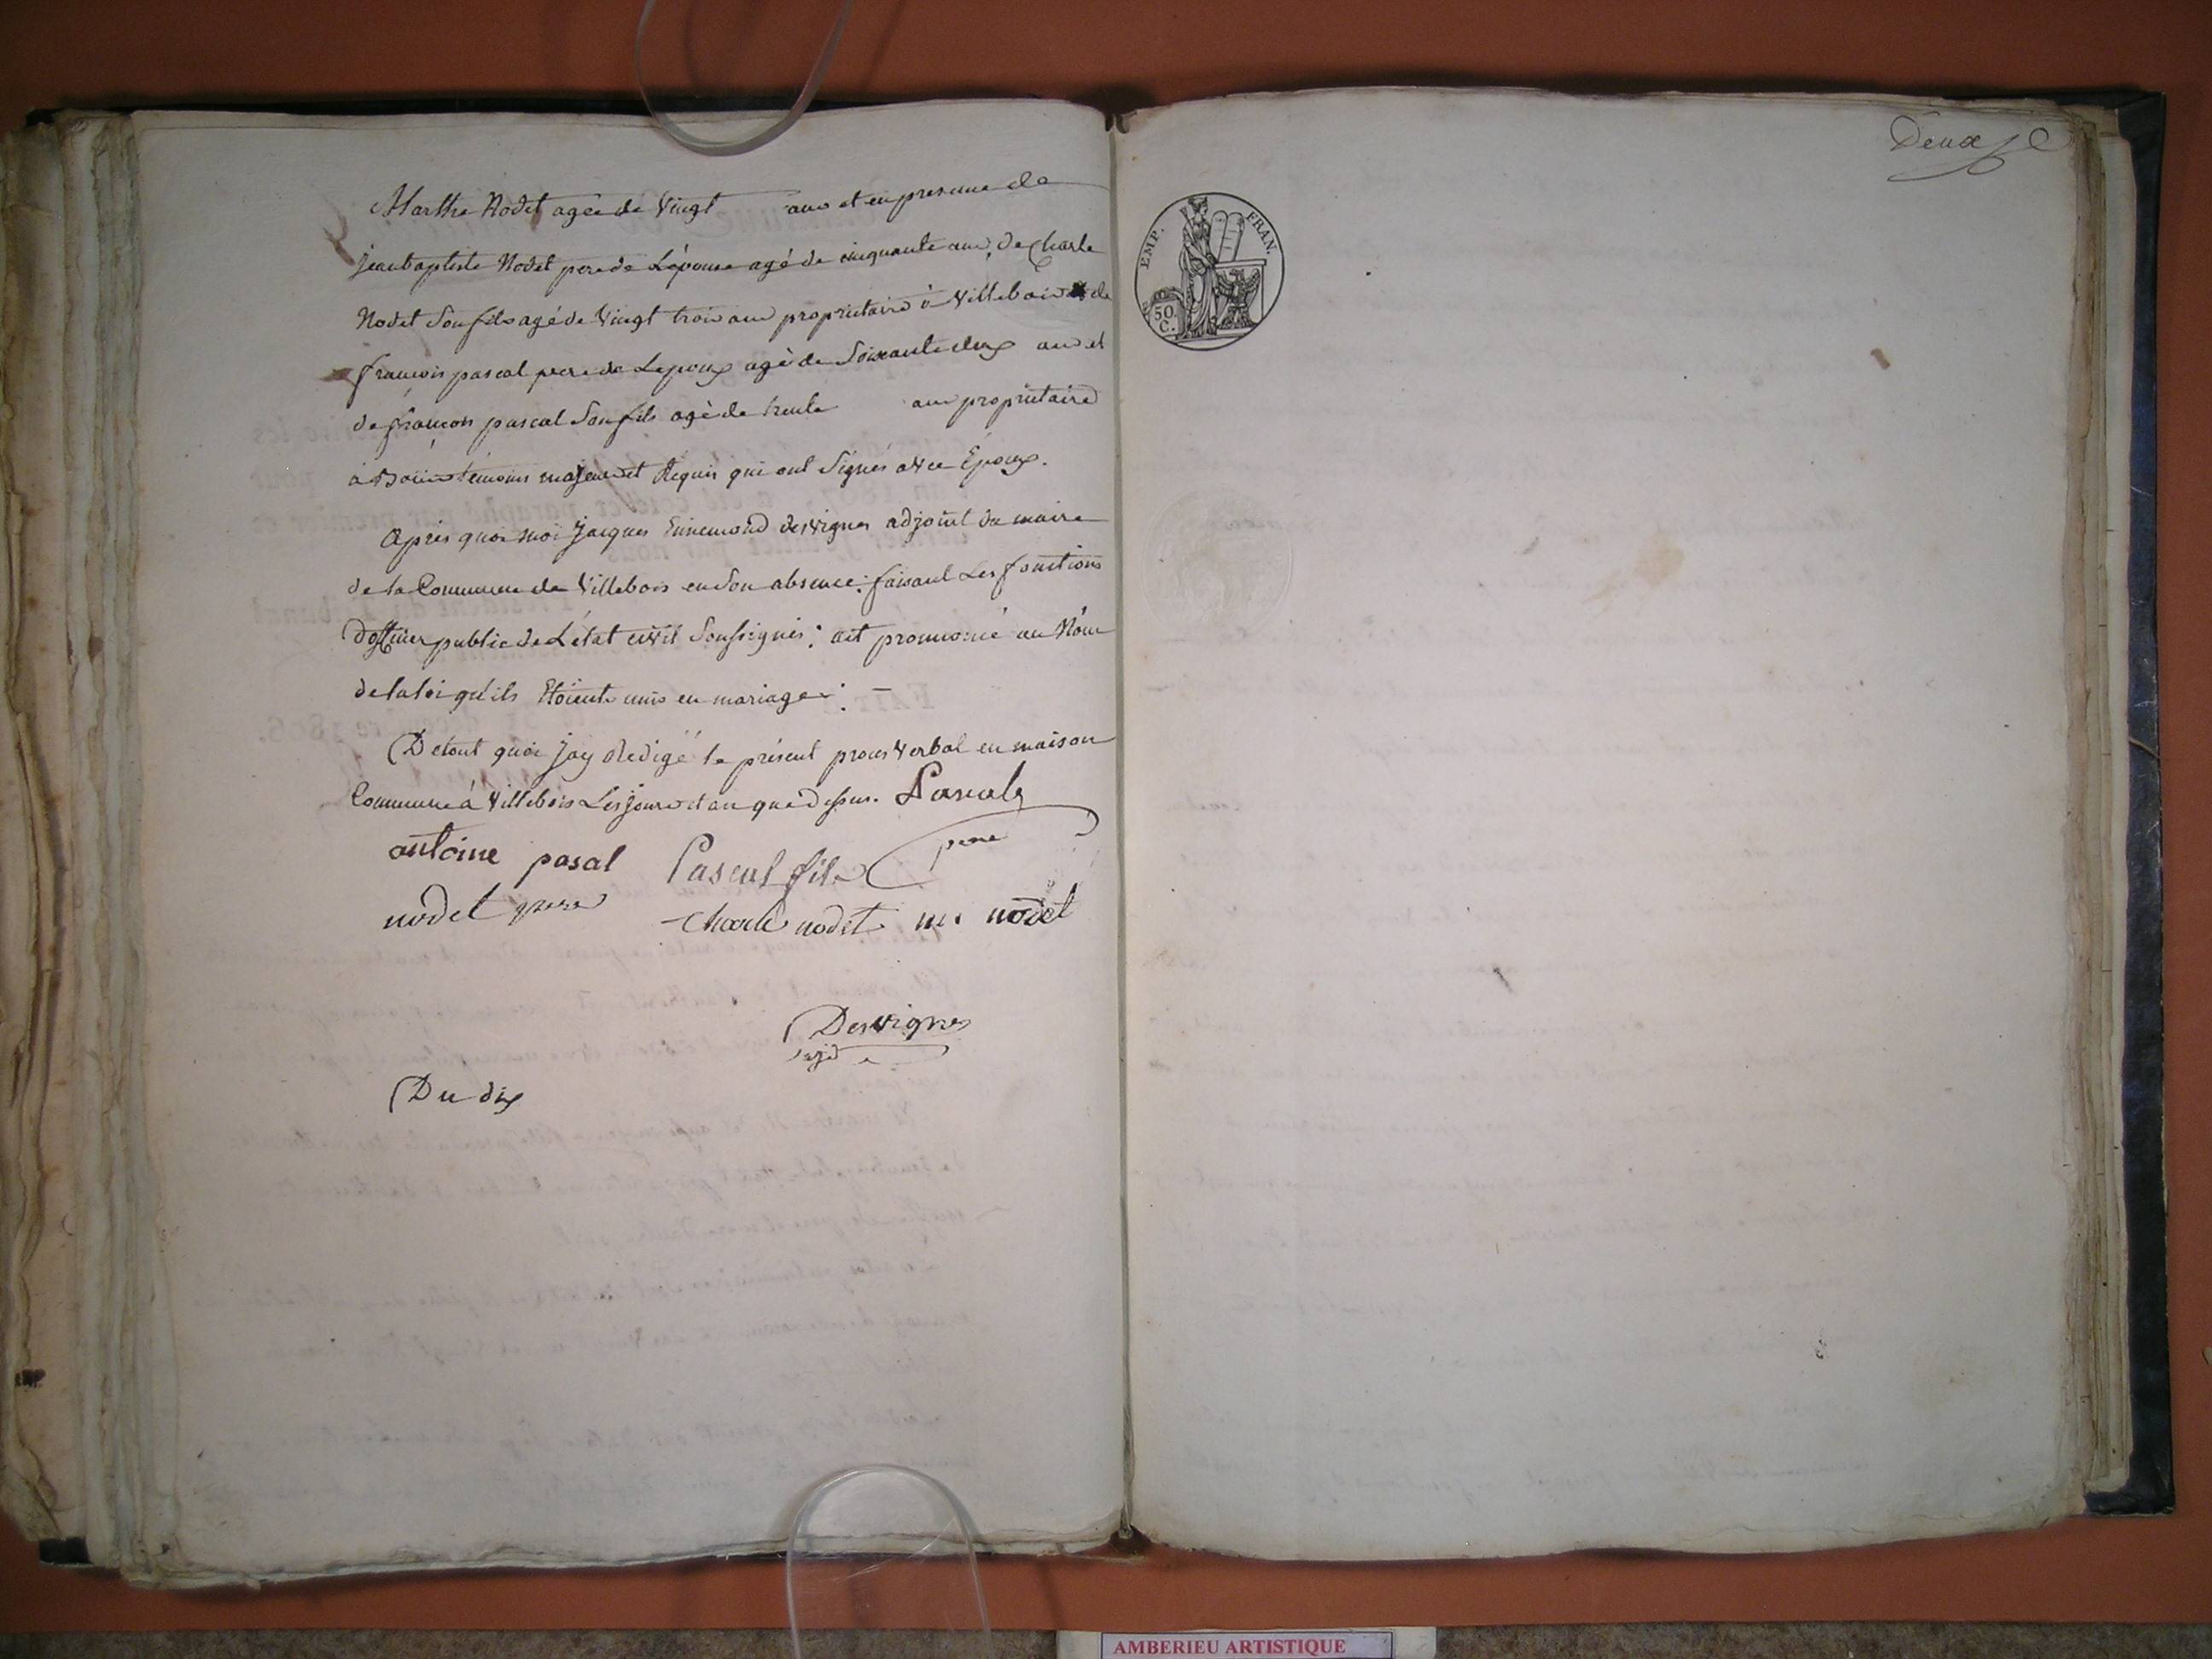 Marthe Nodet agée de Vingt ans et en presence de
jean baptiste Nodet pere de Lépouse agé de cinquante ans, de Charle
Nodet Son fils agé de Vingt trois ans propriétaire à Villebois de
françois pascal pere de Lepoux agé de Soixante deux ans et
de françois pascal Son fils agé de trente ans propriétaire
à témoins majeurs et Requis qui ont Signés avec Epoux.
Après quoi moi jacques Ennemond desvignes adjoint du maire
de la Commune de Villebois en Son absence: faisant Les fonctions
D'officier public de L'état civil Soussignés: ait prononcé au Nom
de la loi qu'ils Etoients unis en mariage: —
De tout quoi jay Redigé le présent procès Verbal en maison
Commune à Villebois Les jours et an que dessus. Pascal
pere
antoine pasal Pascal fils
nodet pere Charle nodet nodet
Desvignes
adj
Du dix
Deux
EMP. FRAN.
50
C.
AMBERIEU ARTISTIQUE